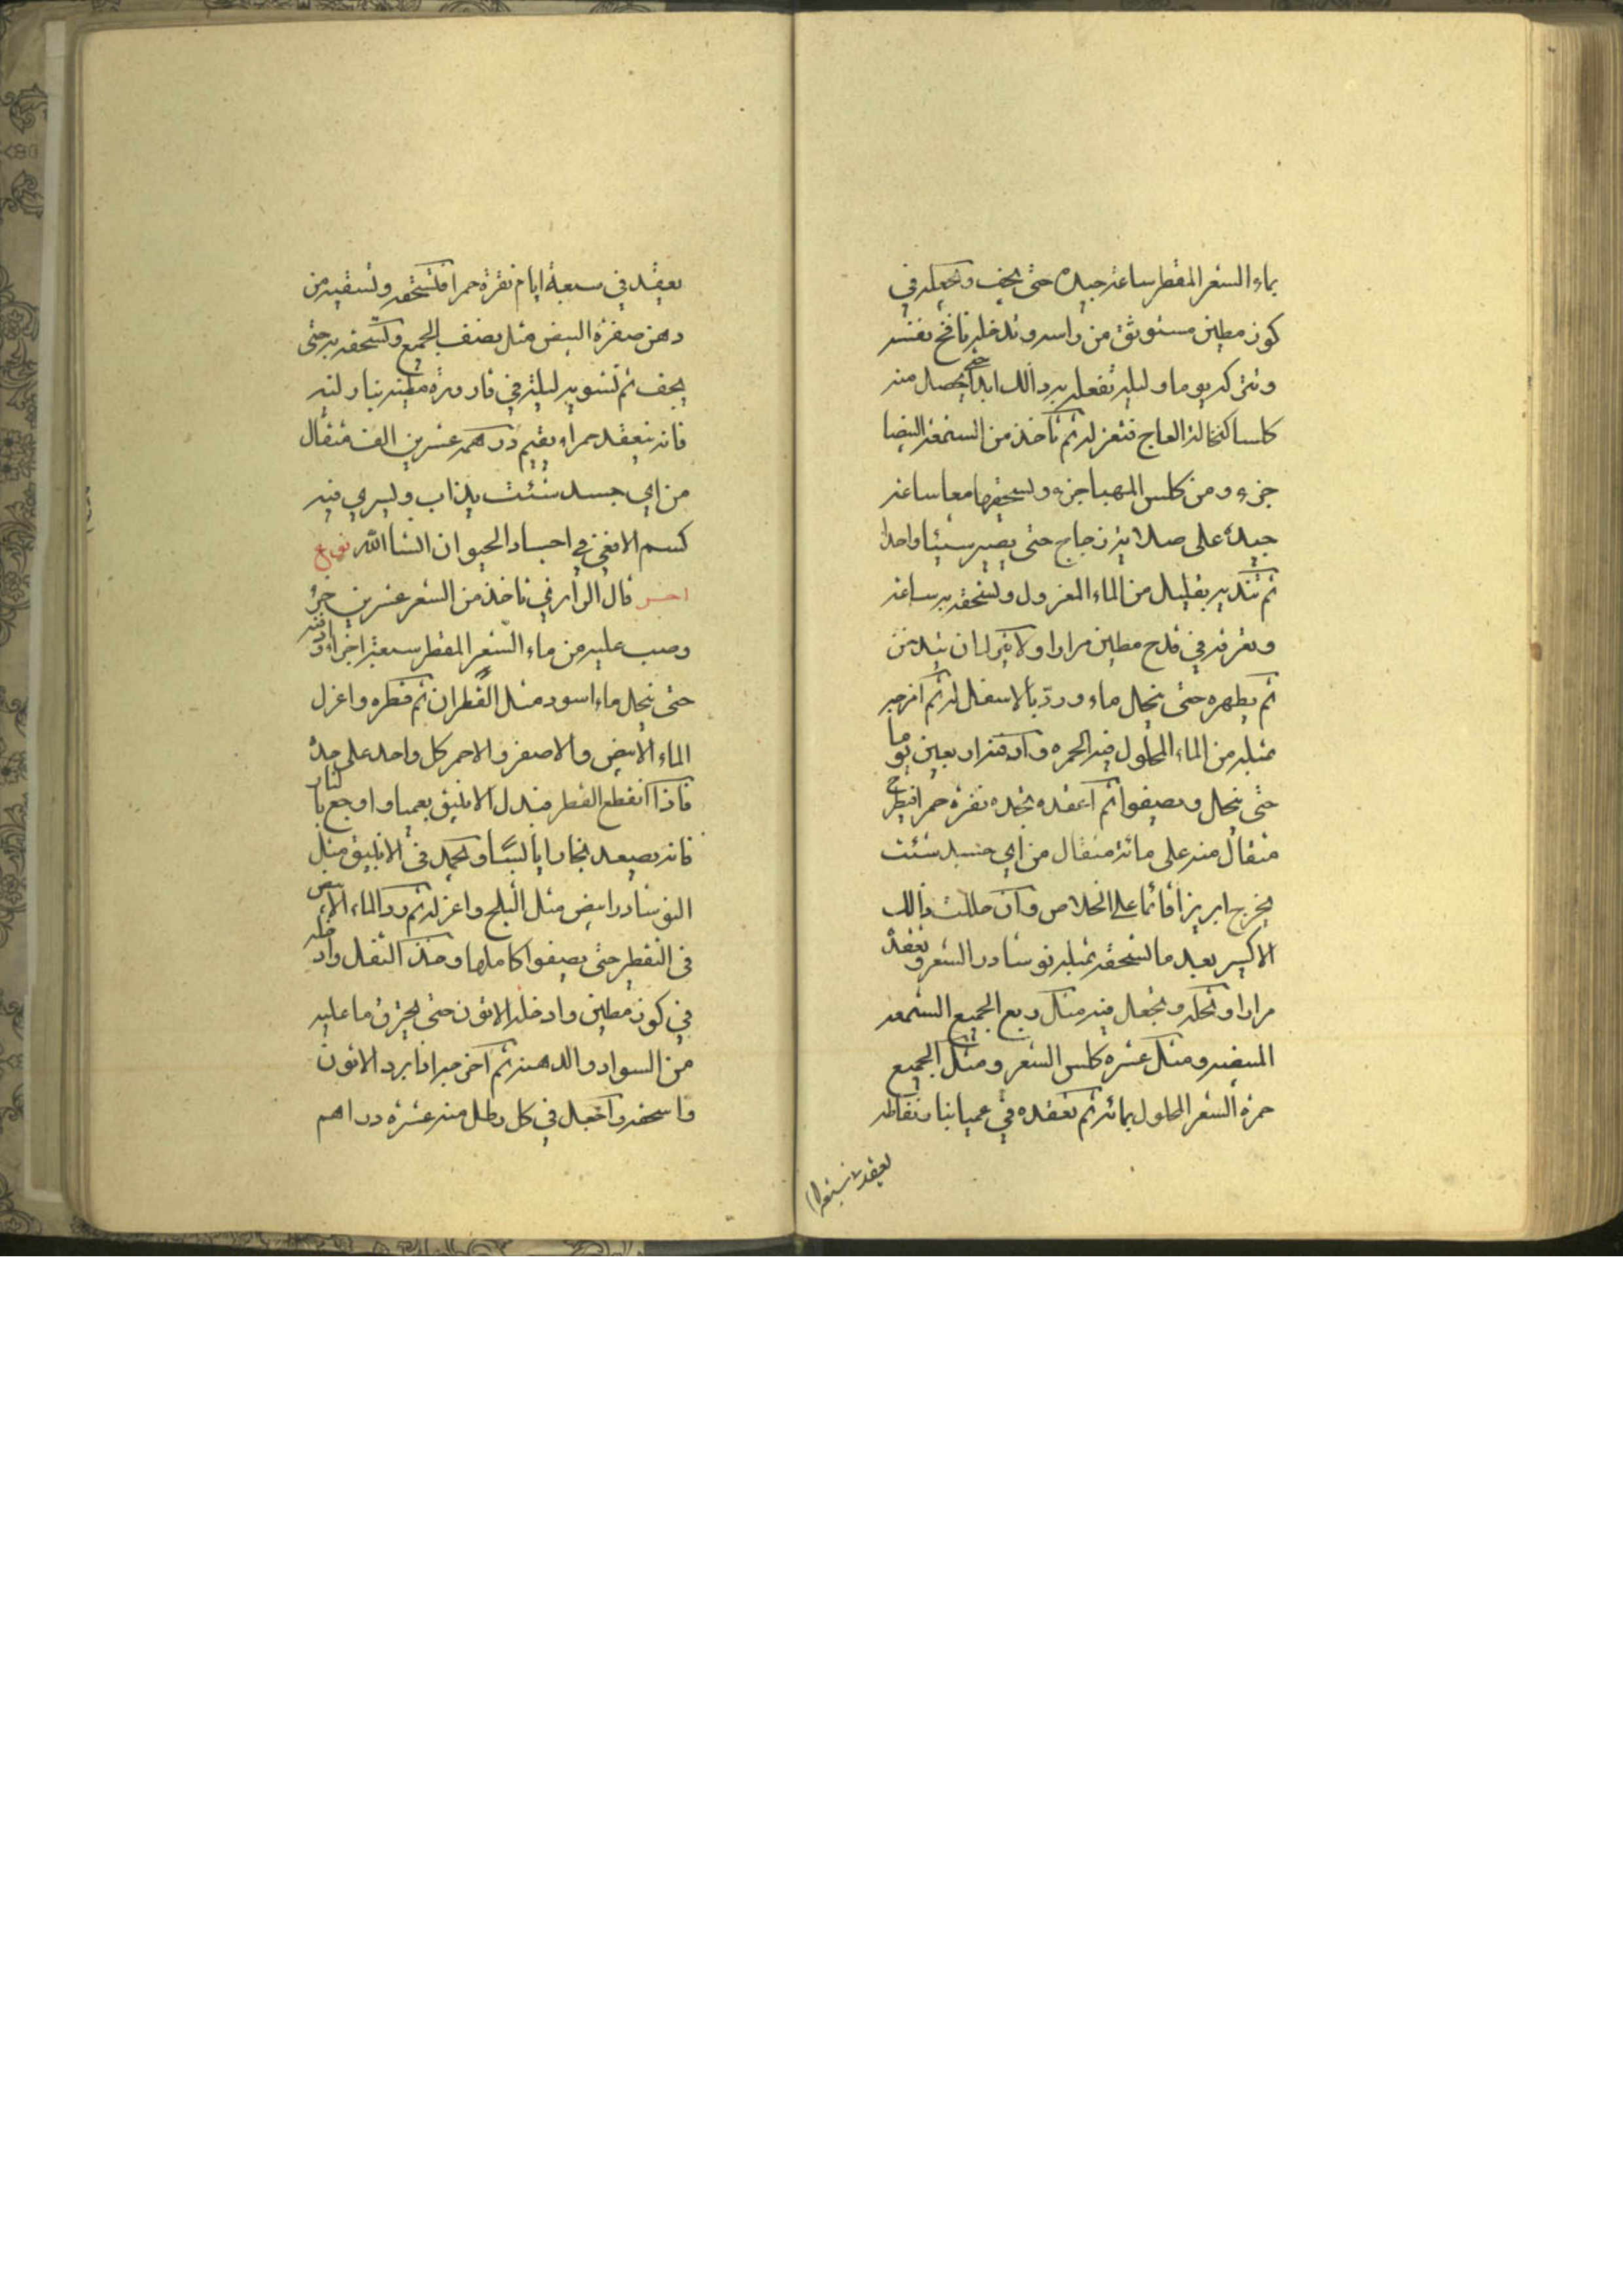 بماء الشعر المقطر ساعة جيده حتى يجف وتجعله في
كوز مطين مستوثق من راسه وتدخله نافخ نفسه
وتتركه يوما وليله تفعل به ذالك ابدا حتى يحصل منه
كلسا كنخالة العاج فتعزله ثم تاخذ من الشمعة البيضا
جزء ومن كلس المهيا جزء وتسحقها معا ساعة
جيدة على صلاية زجاج حتى يصير شيئا واحدا
ثم تنديه بقليل من الماء المعزول وتسحقه به ساعة
وتغرقه في قدح مطين مرارا ولا يزل ان يدخن
ثم يطهره حتى ينحل ماء وردّ بالاسفال له ثم اخرجه
بمثله من الماء المحلول فيه الحمره وادفنه اربعين يوما
حتى ينحل ويصفوا ثم اعقده تجده نقرة حمرا فيطرح
مثقال منه على مائة مثقال من اي جسد شئت
يخرج ابريزا قائما على الخلاص وان حللت ذالك
الاكسير بعد ما تسحقه بمثله نوشادر الشعر وتعقد
مرارا وتحله وتجعل فيه مثل ربع الجميع الشمعه
المبيضه ومثل عشره كلس الشعر ومثل الجميع
حمرة الشعر المحلول بمائه ثم تعقده في عميا بنا ونقاطه
يعقد في سبعة ايام نقرة حمرا فتسحقه وتسقيه من
دهن صفرة البيض مثل نصف الجميع وتسحقه به حتى
يجف ثم تشويه ليلة في قارورة مطينه بنار لينه
فانه ينعقد حمراء يقيم درهمه عشرين الف مثقال
من اي جسد شئت يذاب ويسري فيه
كسم الافعي في اجساد الحيوان انشا الله نوع
اخر قال الرازي تاخذ من الشعر عشرين جزء
وصب عليه من ماء الشعر المقطر سبعة اجزاء وادفنه
حتى ينحل ماء اسود مثل القطران ثم قطره واعزل
الماء الابيض والاصفر والاحمر كل واحد على حدة
فاذا انقطع القطر فبدل الانبيق بعميا واوجع بالنار
فانه يصعد بخارا يابسا ويجمد في الانبيق مثل
النوشادر ابيض مثل الثلج واعزله ثم رد الماء الابيض
في التقطير حتى يصفوا كاملها وخذ الثفل وادخله
في كوز مطين وادخله الاتون حتى يحترق ما عليه
من السواد والدهنه ثم اخرجه اذا برد الاتون
واسحقه واجعل في كل رطل منه عشرة دراهم